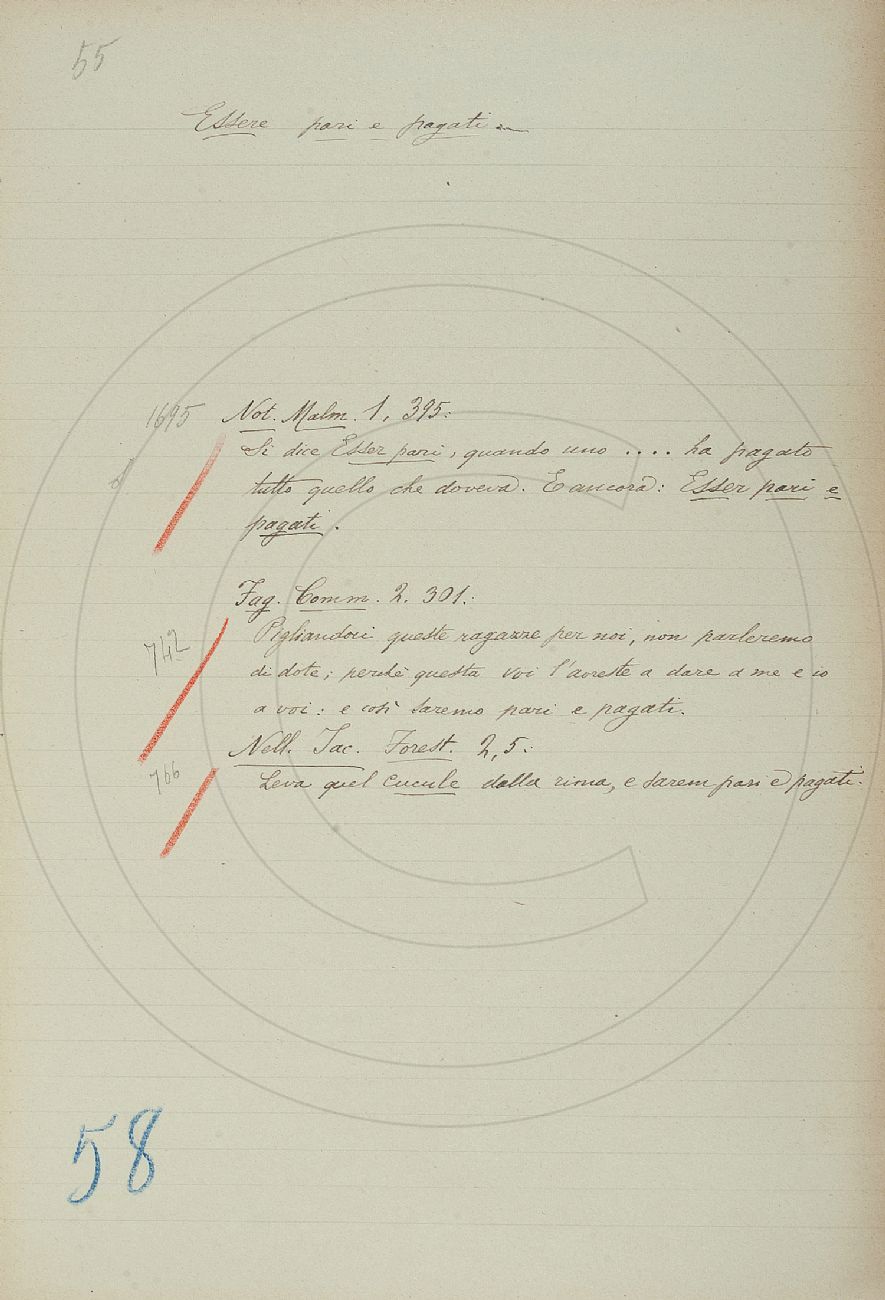 55
Essere pari e pagati.
1695
Not. Malm. 1, 395:
Si dice Esser pari, quando uno .... ha pagato
tutto quello che doveva. E ancora: Esser pari e
pagati.
Fag. Comm. 2. 301.:
742
Pigliandoci queste ragazze per noi, non parleremo
di dote; perchè questa voi l'avreste a dare a me e io
a voi: e così saremo pari e pagati.
Nell. Jac. Forest. 2, 5.:
766
Leva quel Cucule dalla rima, e sarem pari e pagati.
58